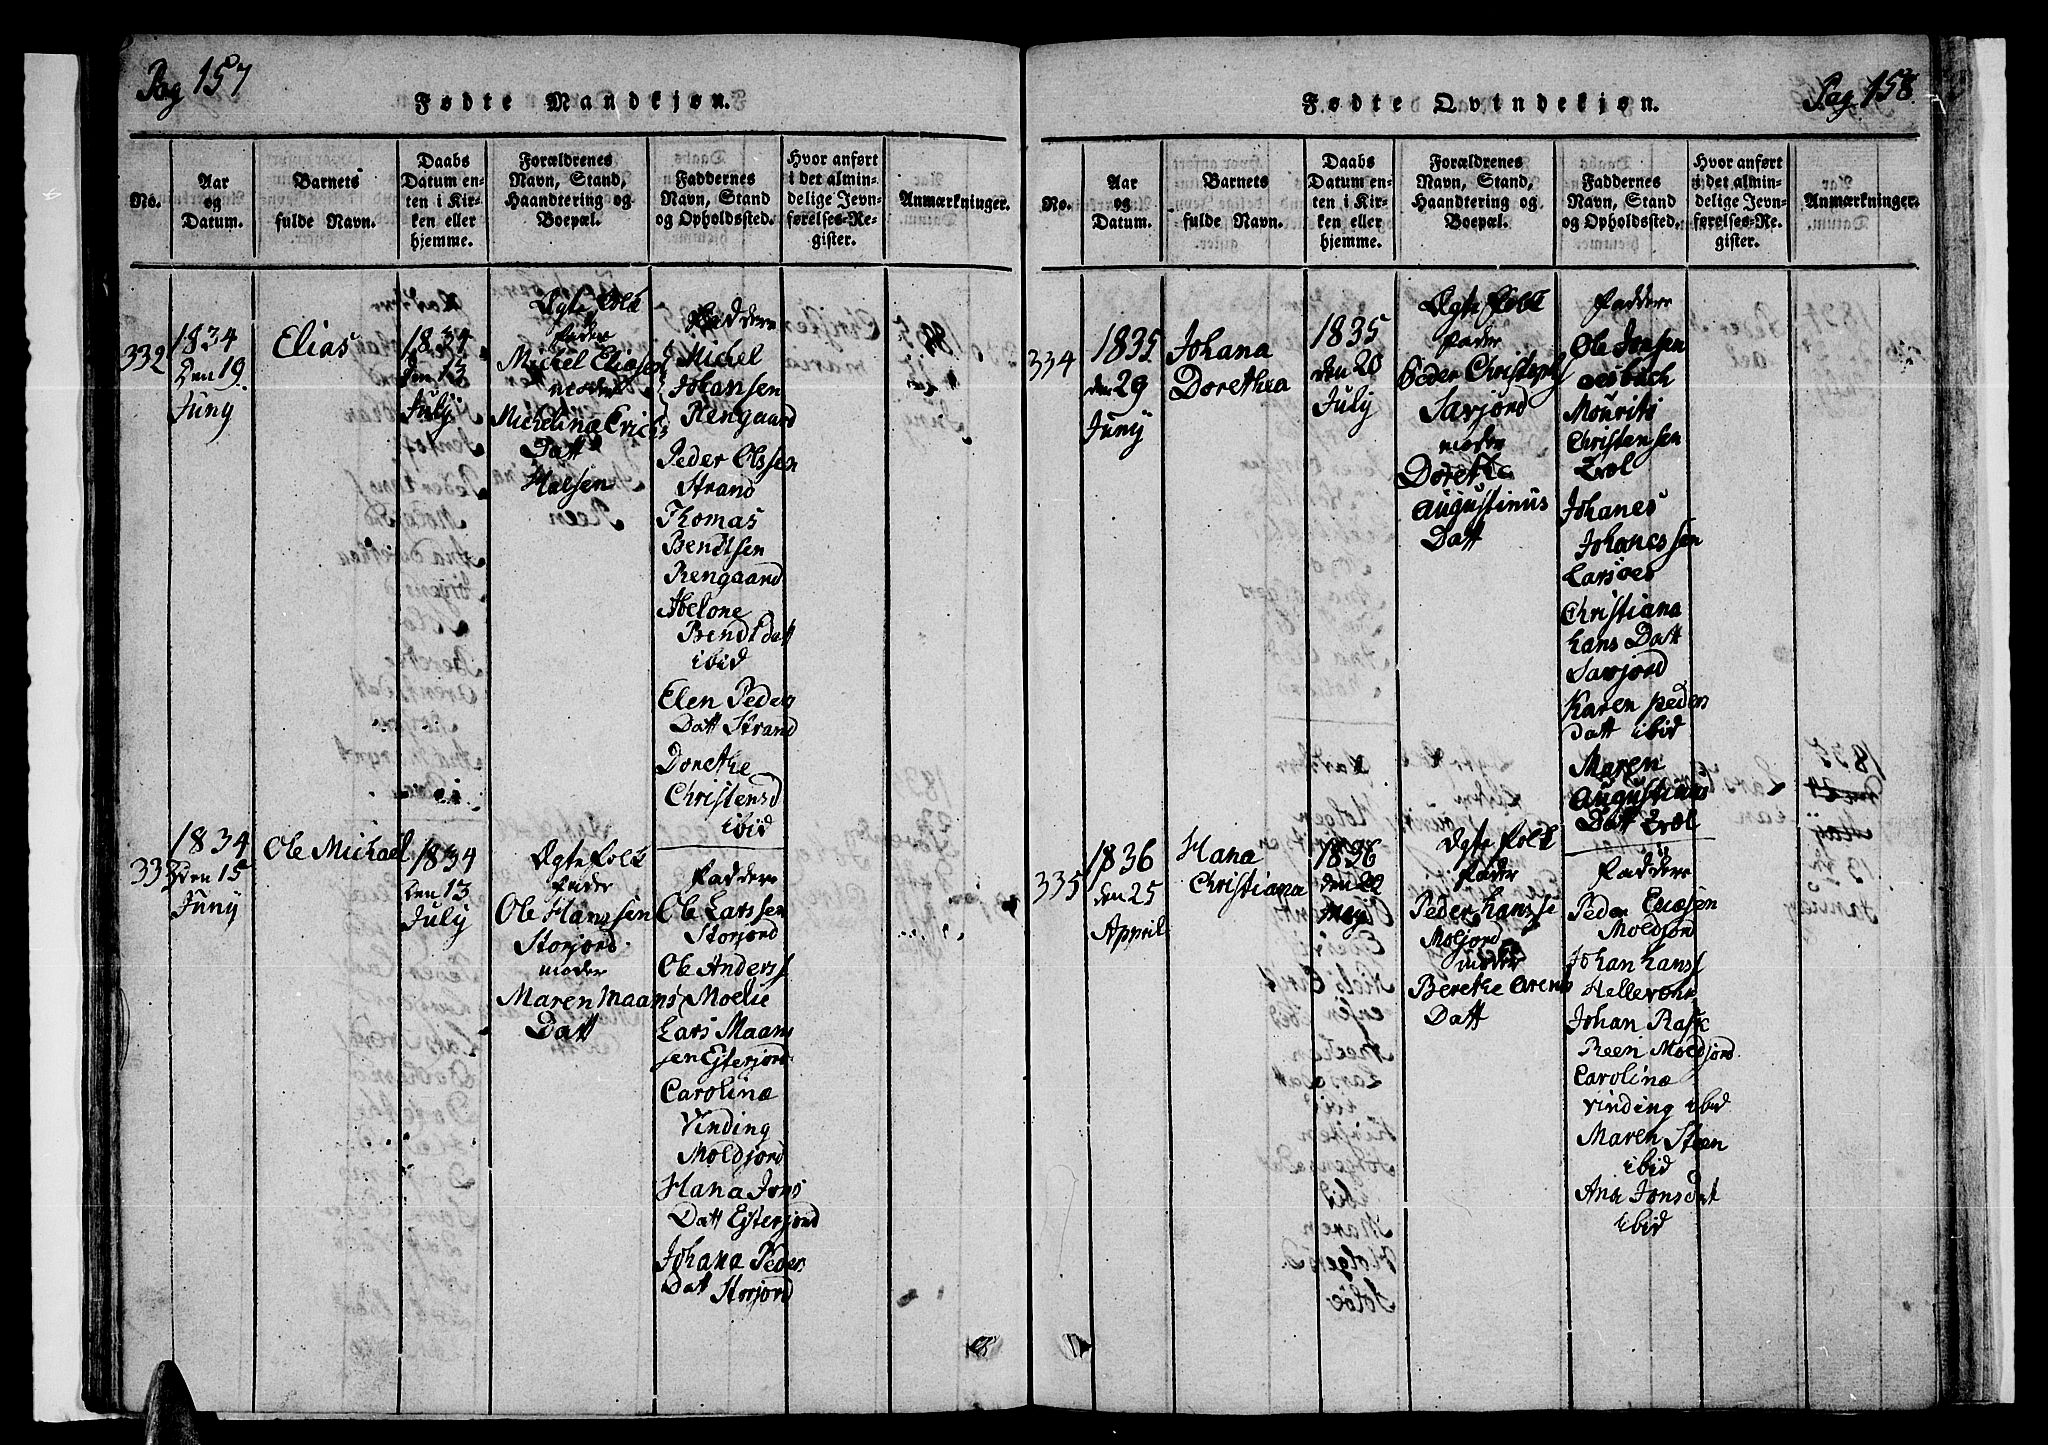 Pag 157
Fødte Mandkjøn.
No.
Aar
og
Datum.
Barnets
fulde Navn.
Daabs
Datum en-
ten i Kir-
ken eller
hjemme.
Forældrenes
Navn, Stand,
Haandtering og
Boepæl.
Faddernes
Navn, Stand
og Opholdssted.
Hvor anført
i det almin-
delige Jevn-
førelses-Re-
gister.
Anmærkninger.
332
1834
Den 19
Juny
Elias
1834
Den 13
July
Ægte Folk
Fader
Mickel Eliasen
moder
Michelinæ Erics
Datt
Halsen
Faddere
Michel
Johansen
Rengaard
Peder Olssen
Strand
Thomas
Bendtsen
Rengaard
Abelone
Bendt datt
ibid
Elen Peders
Datt Strand
Dorethe
Christensd
ibid
333
1834
Den 15
Juny
Ole Michael
1834
Den 13
July
Ægte Folk
Fader
Ole Hanssen
Storjord
moder
Maren Maans
Datt
Faddere
Ole Larssen
Storjord
Ole Anderss
Moelie
Lars Maans
sen Ejterjord
Carolinæ
Vinding
Moldjord
Hana Jons
Datt Ejterjord
Johana Peders
Datt Storjord
Pag 158
Fødte Qvindekjøn.
No.
Aar
og
Datum.
Barnets
fulde Navn.
Daabs
Datum en-
ten i Kir-
ken eller
hjemme.
Forældrenes
Navn, Stand,
Haandtering og
Boepæl.
Faddernes
Navn, Stand
og Opholdssted.
Hvor anført
i det almin-
delige Jevn-
førelses-Re-
gister.
Anmærkninger.
334
1835
den 29
Juny
Johana
Dorethea
1835
den 20
July
Ægte Folk
Fader
Peder Christophs
Savjord
moder
Dorethe
Augustinus
Datt
Faddere
Ole Jonsen
Mourits
Christensen
Johanes
Johanessen
Christiana
hans Datt
Savjord
Karen peders
datt ibid
Maren
Augustinus
Datt
335
1836
den 25
Appril
Hana
Christiana
1836
den 22
May
Ægte Folk
Fader
Peder hansse
Moljord
moder
Berethe Arens
Datt
Faddere
Peder
Moldjord
Johan hanss
Johan Rask
Reen Moldjord
Carolinæ
Vinding ibid
Maren Steen
ibid
Ana Jonsdat
ibid